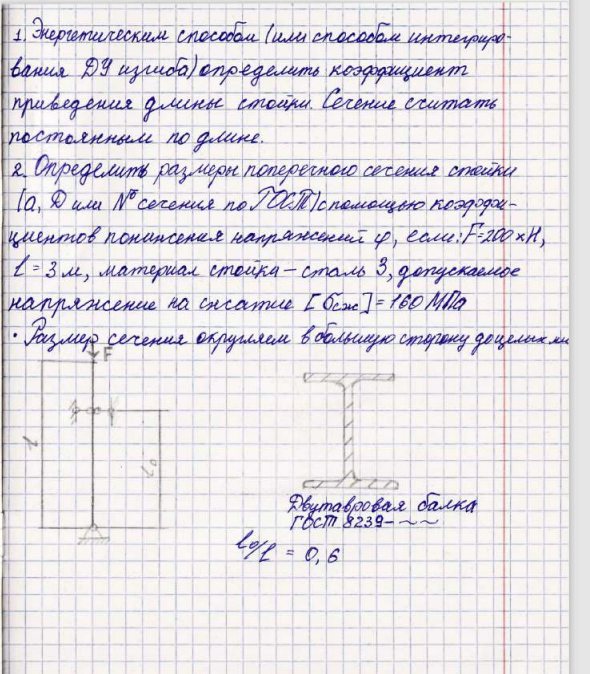 1. Энергетическим способом (или способом интегриро-
вания ДУ изгиба) определить коэффициент
приведения длины стойки. Сечение считать
постоянным по длине.
2. Определить размеры поперечного сечения стойки
(а, D или № сечения по ГОСТ) с помощью коэффи-
циентов понижения напряжений φ, если: F=200 кН,
l = 3 м, материал стойки – сталь 3, допускаемое
напряжение на сжатие [σсж] = 160 МПа
• Размер сечения округляем в большую сторону до целых мм
F
l
l₀
Двутавровая балка
ГОСТ 8239-~~
l₀/l = 0,6